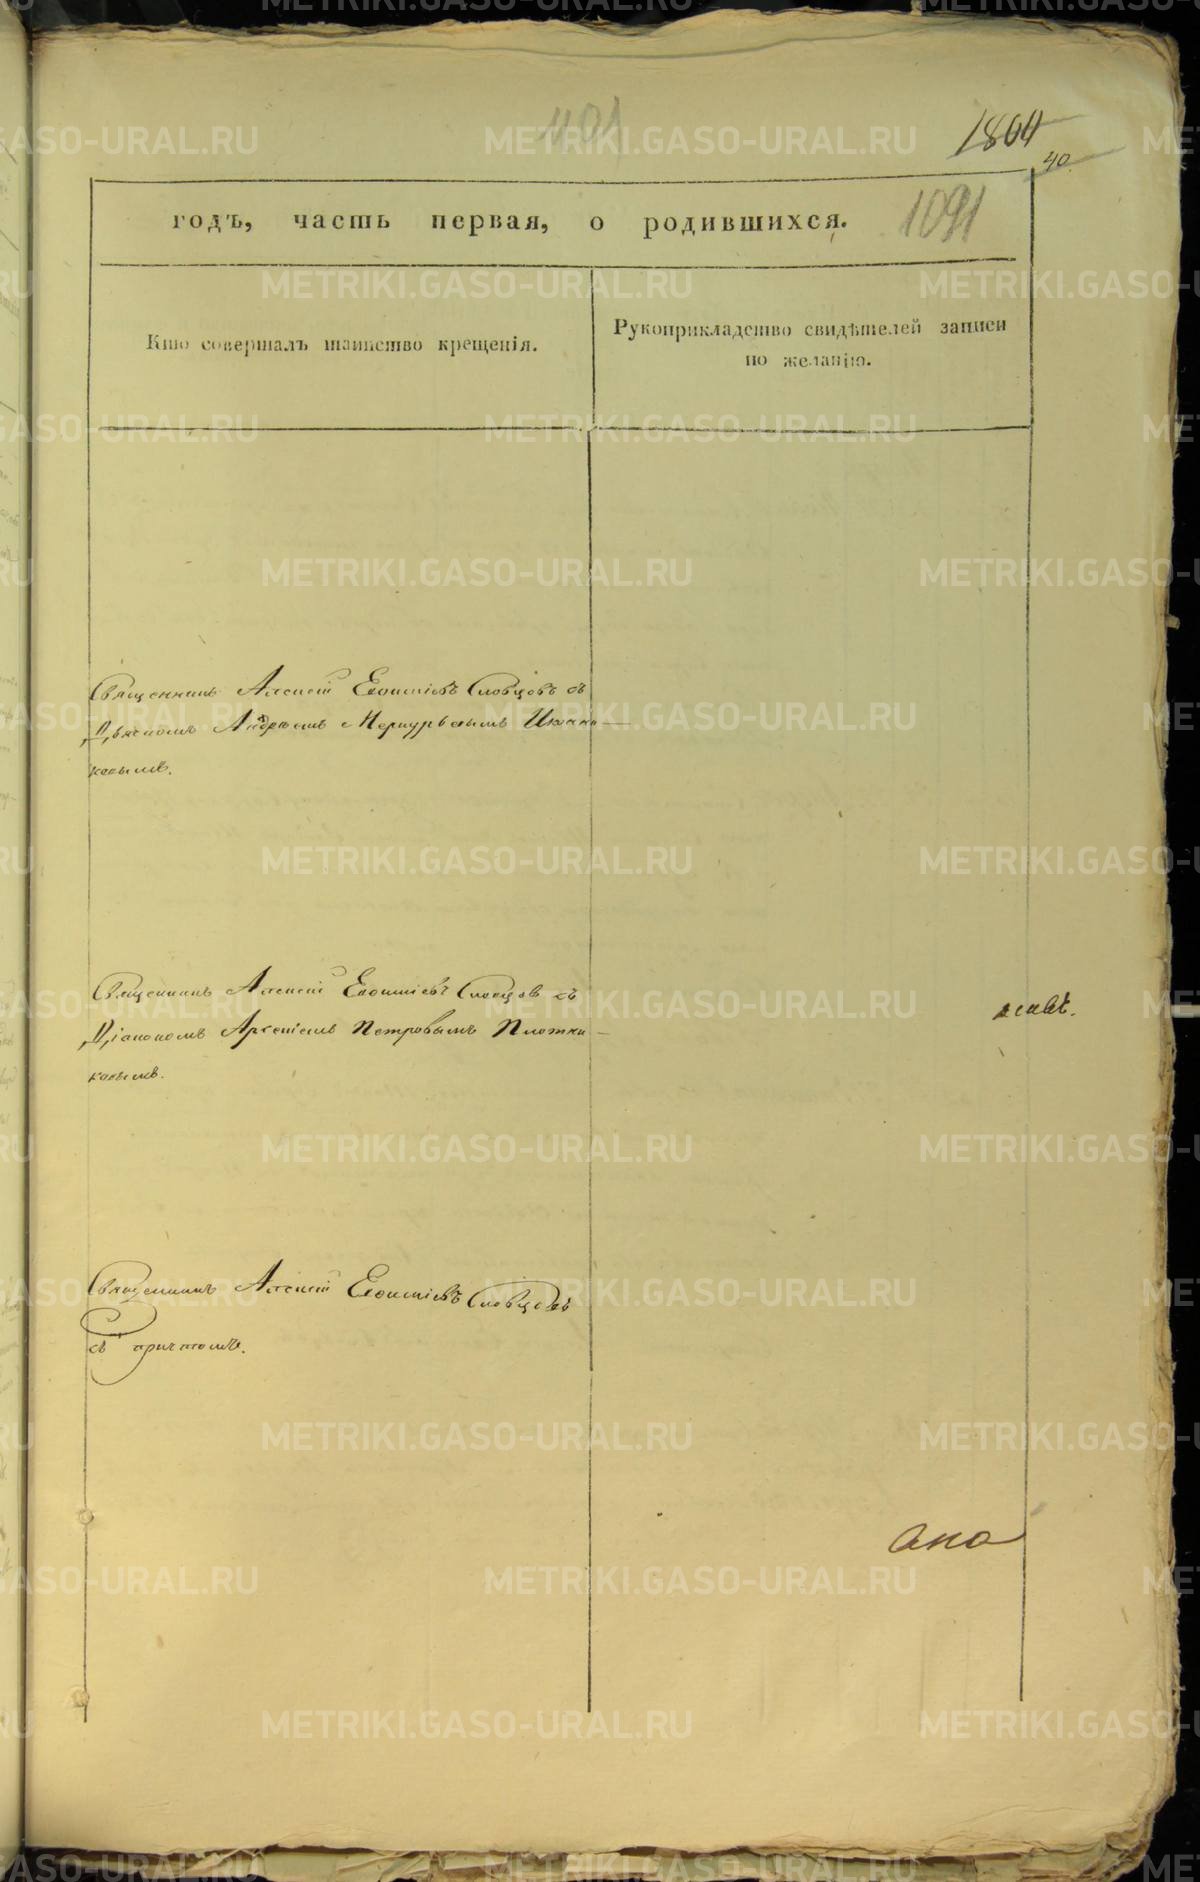 1101
1800
40
1091
годъ, часть первая, о родившихся.
Кто совершалъ таинство крещенія.
Рукоприкладство свидѣтелей записи
по желанію.
Священникъ Алексій Евѳиміевъ Словцовъ съ
Діакономъ Андреемъ Меркурьевымъ
ковымъ.
Священникъ Алексій Евѳиміевъ Словцов съ
Діакономъ Арсеніемъ Петровымъ Плотни-
ковымъ.
Священникъ Алексій Евѳиміевъ Словцовъ
съ причтомъ.
METRIKI.GASO-URAL.RU